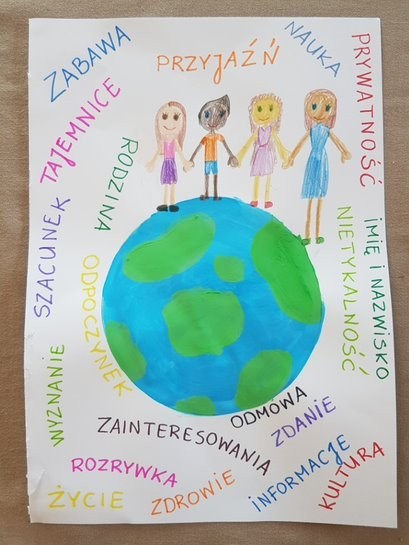 ZABAWA
PRZYJAŹŃ
NAUKA
PRYWATNOŚĆ
TAJEMNICE
RODZINA
SZACUNEK
NIETYKALNOŚĆ
IMIĘ I NAZWISKO
ODPOCZYNEK
WYZNANIE
ZAINTERESOWANIA
ODMOWA
ZDANIE
ROZRYWKA
ŻYCIE
ZDROWIE
INFORMACJE
KULTURA